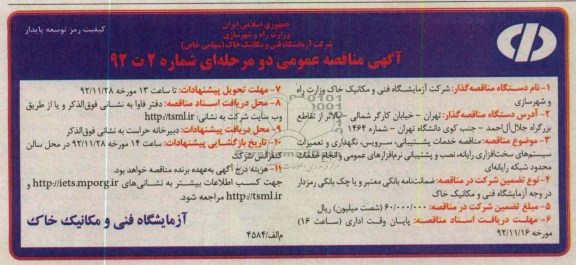 جمهوری اسلامی ایران
وزارت راه و شهرسازی
شرکت آزمایشگاه فنی و مکانیک خاک (سهامی خاص)
کیفیت رمز توسعه پایدار
آگهی مناقصه عمومی دو مرحله‌ای شماره ۲ ت ۹۲
۱- نام دستگاه مناقصه‌گذار: شرکت آزمایشگاه فنی و مکانیک خاک وزارت راه
و شهرسازی
۲- آدرس دستگاه مناقصه‌گذار: تهران - خیابان کارگر شمالی - بالاتر از تقاطع
بزرگراه جلال‌آل‌احمد - جنب کوی دانشگاه تهران - شماره ۱۴۶۴
۳- موضوع مناقصه: مناقصه خدمات پشتیبانی، سرویس، نگهداری و تعمیرات
سیستم‌های سخت‌افزاری رایانه، نصب و پشتیبانی نرم‌افزارهای عمومی و انجام خدمات
محدود شبکه رایانه‌ای
۴- نوع تضمین شرکت در مناقصه: ضمانت‌نامه بانکی معتبر و یا چک بانکی رمزدار
در وجه آزمایشگاه فنی و مکانیک خاک
۵- مبلغ تضمین شرکت در مناقصه: ۶۰/۰۰۰/۰۰۰ (شصت میلیون) ریال
۶- مهلت دریافت اسناد مناقصه: پایان وقت اداری (ساعت ۱۶)
مورخه ۹۲/۱۱/۱۶
۷- مهلت تحویل پیشنهادات: تا ساعت ۱۳ مورخه ۹۲/۱۱/۲۸
۸- محل دریافت اسناد مناقصه: دفتر فاوا به نشانی فوق‌الذکر و یا از طریق
وب سایت شرکت به نشانی: http://tsml.ir
۹- محل دریافت پیشنهادات: دبیرخانه حراست به نشانی فوق‌الذکر
۱۰- تاریخ بازگشایی پیشنهادات: ساعت ۱۴ مورخه ۹۲/۱۱/۲۸ در محل سالن
کنفرانس شرکت
۱۱- هزینه درج آگهی به‌عهده برنده مناقصه خواهد بود.
جهت کسب اطلاعات بیشتر به نشانی‌های http://iets.mporg.ir و
http://tsml.ir مراجعه شود.
آزمایشگاه فنی و مکانیک خاک
م‌الف/۴۵۸۴